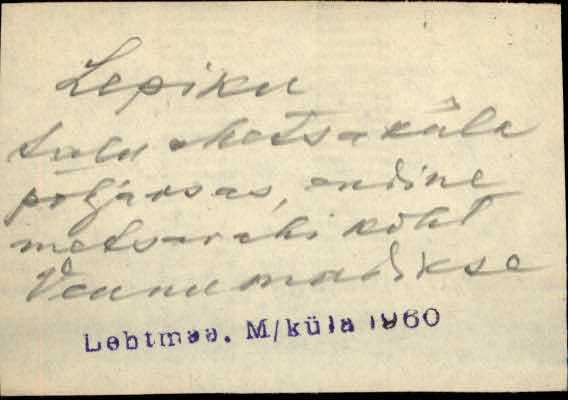 Lepiku
talu Metsaküla
põhjaosas, endine
metsavahi koht
Vennumadikse
Lehtmaa. M/küla 1960